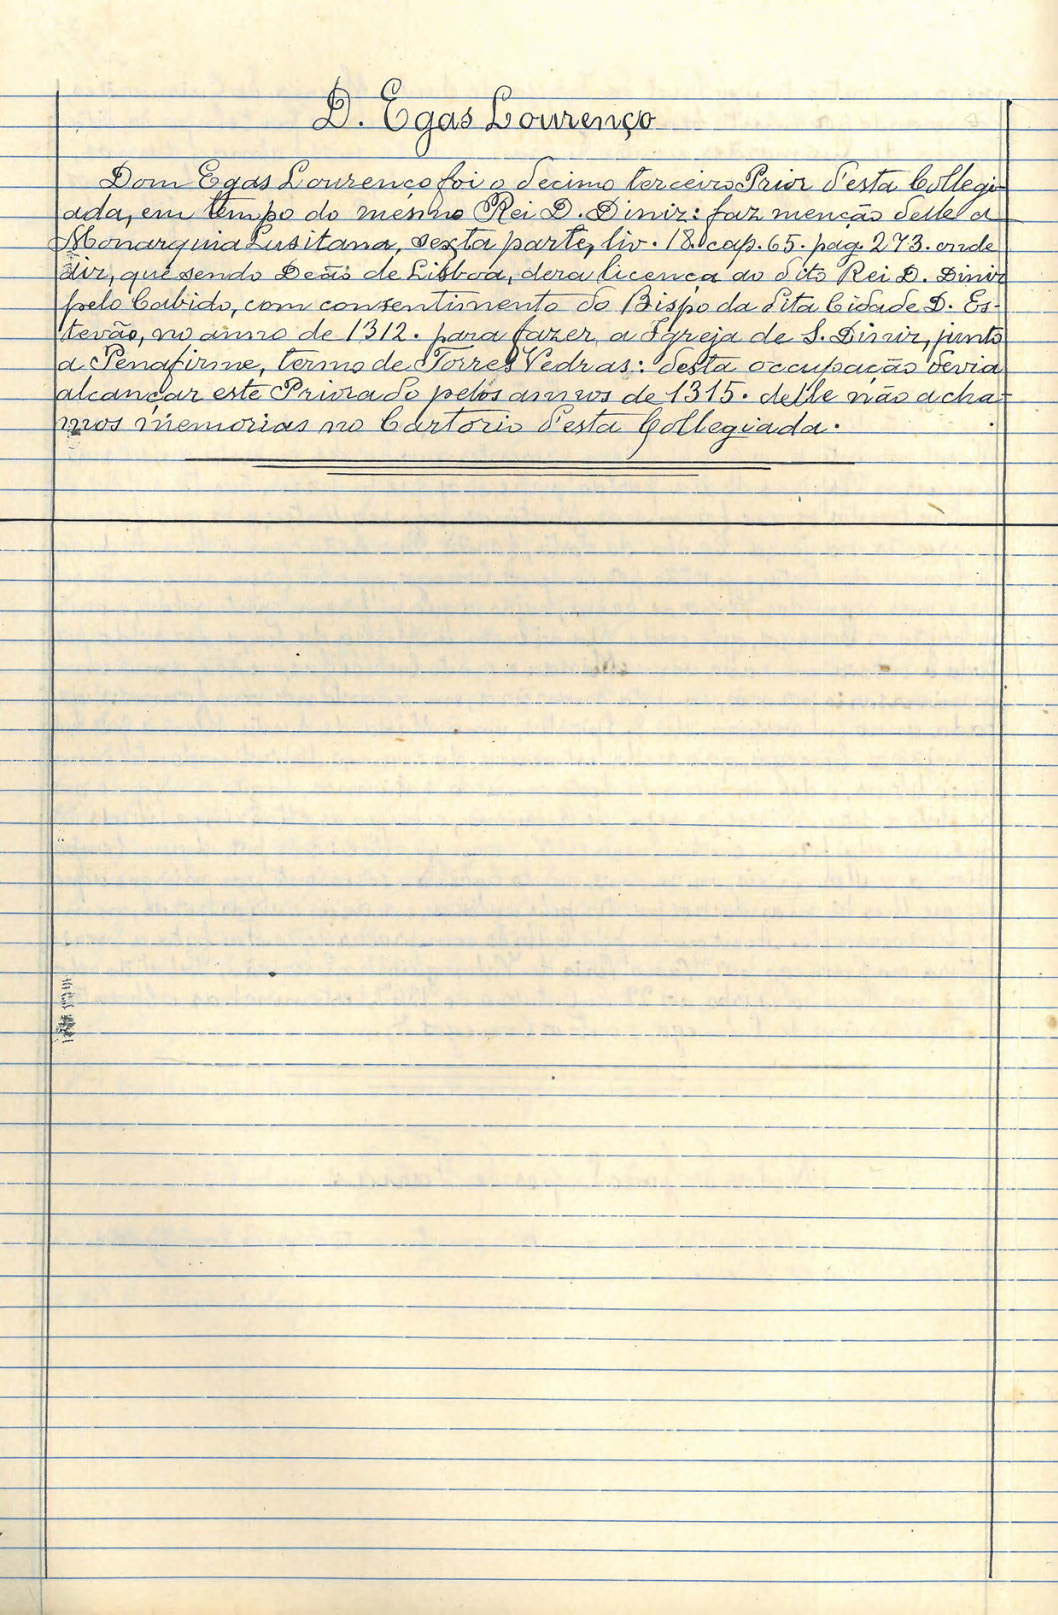 D. Egas Lourenço
Dom Egas Lourenço foi o decimo terceiro Prior d'esta Collegi-
ada, em tempo do mesmo Rei D. Diniz: faz menção delle a
Monarquia Lusitana, sexta parte, liv. 18. cap. 65. pag. 273. onde
diz, que sendo Deão de Lisboa, dera licença ao dito Rei D. Diniz
pelo Cabido, com consentimento do Bispo da dita Cidade D. Es-
tevão, no anno de 1312. para fazer a Igreja de S. Diniz, junto
a Penafirme, termo de Torres Vedras: desta occupação devia
alcançar este Priorado pelos annos de 1315. delle não acha-
mos memorias no Cartorio d'esta Collegiada.